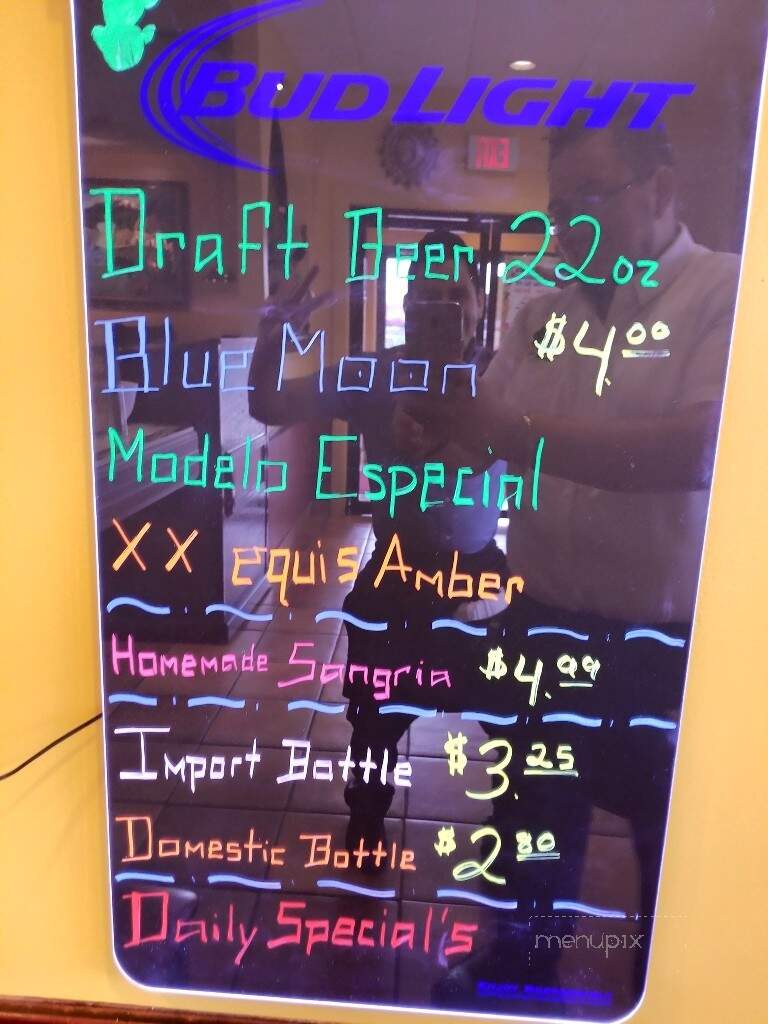 BUD LIGHT
EXIT
Draft Beer 22oz
Blue Moon $4.00
Modelo Especial
XX equis Amber
Homemade Sangria $4.99
Import Bottle $3.25
Domestic Bottle $2.80
Daily Special's
menupix